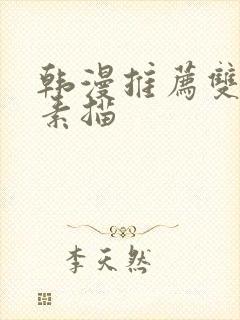 韩漫推薦雙
素描
李天然